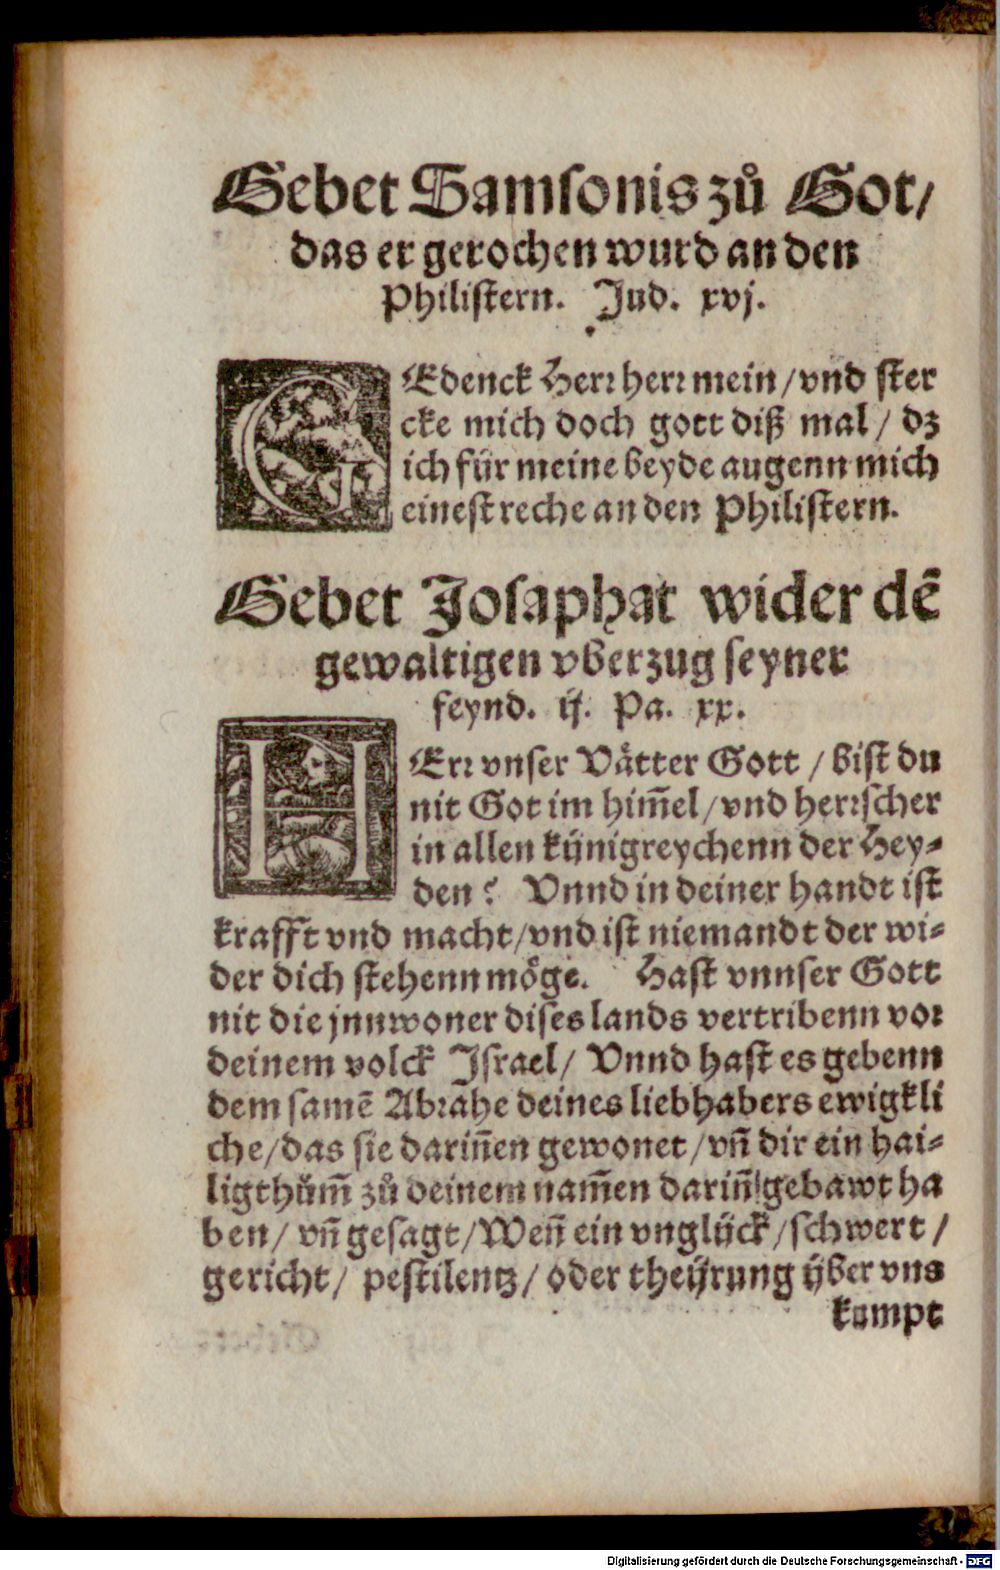 Gebet Samsonis zů Got/
das er gerochen wurd an den
Philistern. Jud. xvj.
GEdenck Herr herr mein/vnd ster
cke mich doch gott diß mal/ dz
ich für meine beyde augenn mich
einest reche an den Philistern.
Gebet Josaphat wider dē
gewaltigen vberzug seyner
feynd. ij. Pa. xx.
HErr vnser Vätter Gott / bist du
nit Got im him̄el/vnd herrscher
in allen künigreychenn der Hey-
den? Vnnd in deiner handt ist
krafft vnd macht/vnd ist niemandt der wi-
der dich stehenn möge. Hast vnnser Gott
nit die jnnwoner dises lands vertribenn vor
deinem volck Israel/ Vnnd hast es gebenn
dem samē Abrahe deines liebhabers ewigkli
che/das sie darin̄en gewonet/vn̄ dir ein hai-
ligthům̄ zů deinem nam̄en darin̄ gebawt ha
ben/ vn̄ gesagt/Wen̄ ein vnglück/schwert/
gericht/ pestilentz/ oder theürung über vns
kumpt
Digitalisierung gefördert durch die Deutsche Forschungsgemeinschaft - DFG